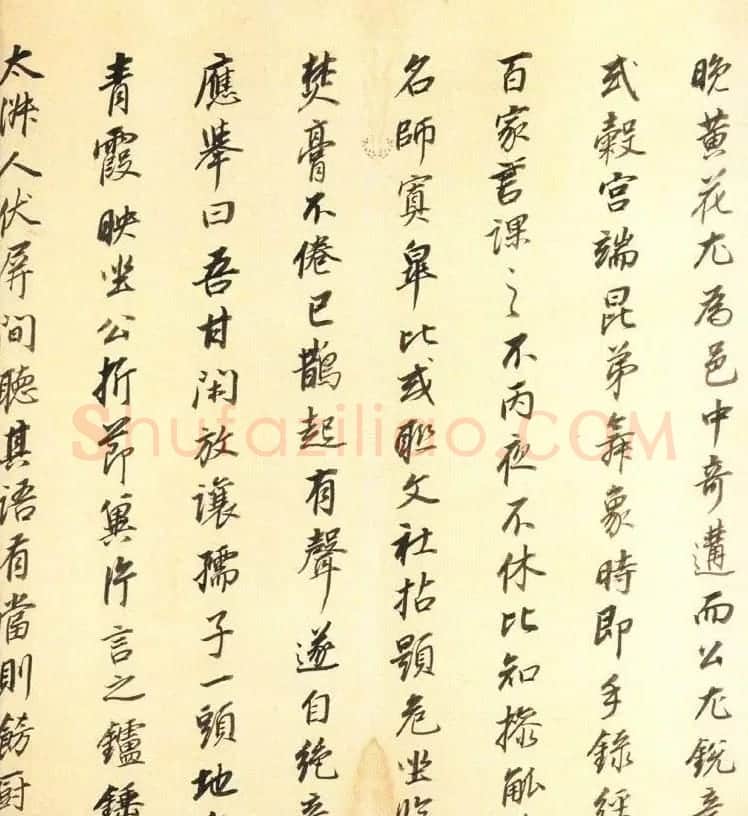 晚黃花尤為邑中奇遘而公尤銳意
式穀宮端昆弟舞象時即手錄經
百家言課之不丙夜不休比知操觚
名師賓皐比或聯文社拈題危坐
焚膏不倦已鵲起有聲遂自絕意
應舉曰吾甘閑放讓孺子一頭地
青霞映坐公折節冀片言之鑪錘
太淋人伏屏間聽其語有當則餙廚
Shufaziliao.COM